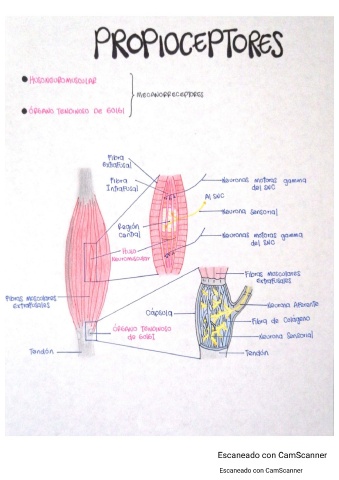 PROPIOCEPTORES
HUSO NEUROMUSCULAR
MECANORRECEPTORES
ÓRGANO TENDINOSO DE GOLGI
Fibra
Extrafusal
Fibra
Intrafusal
Neuronas motoras gamma
del SNC
Al SNC
Neurona Sensorial
Región
Central
Neuronas motoras gamma
del SNC
Huso
Neuromuscular
Fibras musculares
extrafusales
Fibras musculares
extrafusales
Neurona Aferente
Cápsula
Fibra de Colágeno
ÓRGANO TENDINOSO
DE GOLGI
Neurona Sensorial
Tendón
Tendón
Escaneado con CamScanner
Escaneado con CamScanner